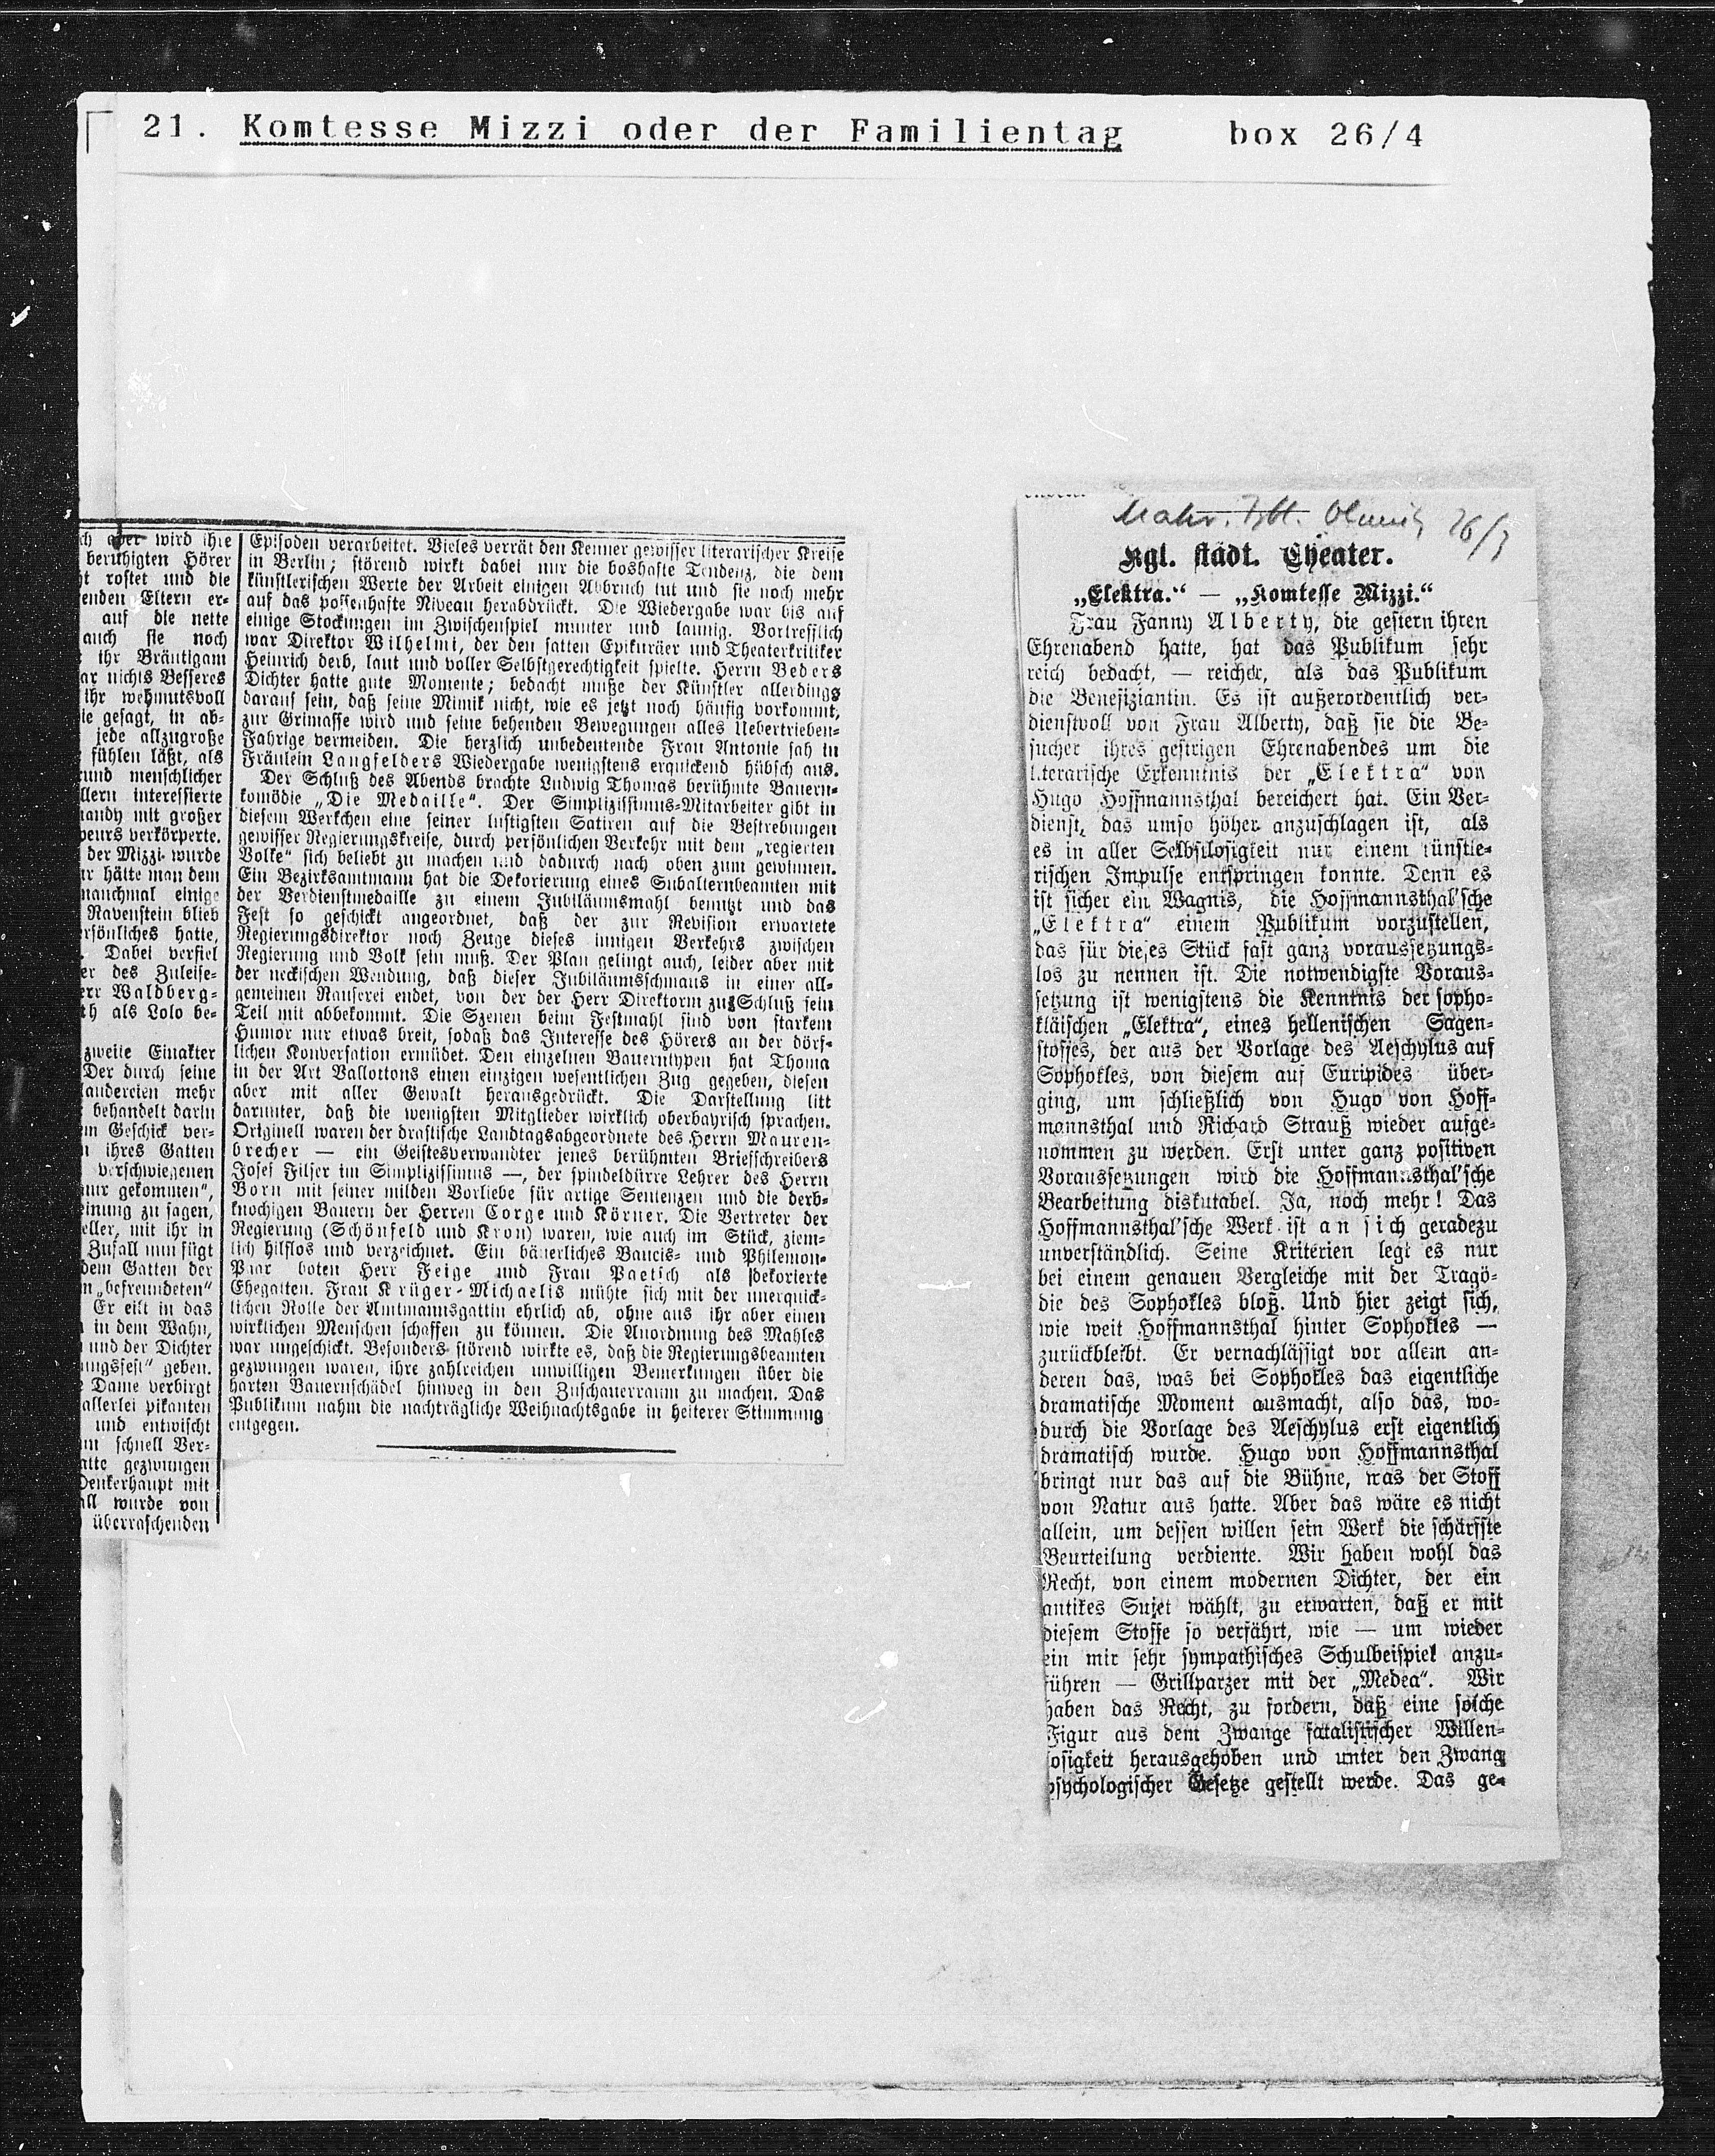 21. Komtesse Mizzi oder der Familientag box 26/4
ch aber wird ihre
beruhigten Hörer
ht rostet und die
enden Eltern er-
auf die nette
auch sie noch
ihr Bräutigam
ar nichts Besseres
ihr wehmutsvoll
ie gesagt, in ab-
jede allzugroße
fühlen läßt, als
und menschlicher
llern interessierte
andy mit großer
peurs verkörperte.
der Mizzi wurde
ur hätte man dem
manchmal einige
Ravenstein blieb
ersönliches hatte,
. Dabei verfiel
er des Zuleise-
err Waldberg-
th als Lolo be-
zweite Einakter
Der durch seine
laudereien mehr
behandelt darin
em Geschick ver-
n ihres Gatten
verschwiegenen
nur gekommen“,
einung zu sagen,
eller, mit ihr in
Zufall nun fügt
dem Gatten der
n „befreundeten“
Er eilt in das
in dem Wahn,
und der Dichter
ungsfest“ geben.
Dame verbirgt
allerlei pikanten
und entwischt
um schnell Ver-
atte gezwungen
Denkerhaupt mit
all wurde von
überraschenden
Episoden verarbeitet. Vieles verrät den Kenner gewisser literarischer Kreise
in Berlin; störend wirkt dabei nur die boshafte Tendenz, die dem
künstlerischen Werte der Arbeit einigen Abbruch tut und sie noch mehr
auf das possenhafte Niveau herabdrückt. Die Wiedergabe war bis auf
einige Stockungen im Zwischenspiel munter und launig. Vortrefflich
war Direktor Wilhelmi, der den satten Epikuräer und Theaterkritiker
Heinrich derb, laut und voller Selbstgerechtigkeit spielte. Herrn Beders
Dichter hatte gute Momente; bedacht muße der Künstler allerdings
darauf sein, daß seine Mimik nicht, wie es jetzt noch häufig vorkommt,
zur Grimasse wird und seine behenden Bewegungen alles Uebertrieben-
Fahrige vermeiden. Die herzlich unbedeutende Frau Antonie sah in
Fräulein Langfelders Wiedergabe wenigstens erquickend hübsch aus.
Der Schluß des Abends brachte Ludwig Thomas berühmte Bauern-
komödie „Die Medaille“. Der Simplizissimus-Mitarbeiter gibt in
diesem Werkchen eine seiner lustigsten Satiren auf die Bestrebungen
gewisser Regierungskreise, durch persönlichen Verkehr mit dem „regierten
Volke“ sich beliebt zu machen und dadurch nach oben zum gewinnen.
Ein Bezirksamtmann hat die Dekorierung eines Subalternbeamten mit
der Verdienstmedaille zu einem Jubiläumsmahl benutzt und das
Fest so geschickt angeordnet, daß der zur Revision erwartete
Regierungsdirektor noch Zeuge dieses innigen Verkehrs zwischen
Regierung und Volk sein muß. Der Plan gelingt auch, leider aber mit
der neckischen Wendung, daß dieser Jubiläumsschmaus in einer all-
gemeinen Rauferei endet, von der der Herr Direktorm zu Schluß sein
Teil mit abbekommt. Die Szenen beim Festmahl sind von starkem
Humor nur etwas breit, sodaß das Interesse des Hörers an der dörf-
lichen Konversation ermüdet. Den einzelnen Bauerntypen hat Thoma
in der Art Vallottons einen einzigen wesentlichen Zug gegeben, diesen
aber mit aller Gewalt herausgedrückt. Die Darstellung litt
darunter, daß die wenigsten Mitglieder wirklich oberbayrisch sprachen.
Originell waren der drastische Landtagsabgeordnete des Herrn Mauren-
brecher — ein Geistesverwandter jenes berühmten Briefschreibers
Josef Filser im Simplizissimus —, der spindeldürre Lehrer des Herrn
Born mit seiner milden Vorliebe für artige Sentenzen und die derb-
knochigen Bauern der Herren Corge und Körner. Die Vertreter der
Regierung (Schönfeld und Kron) waren, wie auch im Stück, ziem-
lich hilflos und verzeichnet. Ein bäuerliches Baucis- und Philemon-
Paar boten Herr Feige und Frau Paetsch als dekorierte
Ehegatten. Frau Krüger-Michaelis mühte sich mit der unerquick-
lichen Rolle der Amtmannsgattin ehrlich ab, ohne aus ihr aber einen
wirklichen Menschen schaffen zu können. Die Anordnung des Mahles
war ungeschickt. Besonders störend wirkte es, daß die Regierungsbeamten
gezwungen waren, ihre zahlreichen unwilligen Bemerkungen über die
harten Bauernschädel hinweg in den Zuschauerraum zu machen. Das
Publikum nahm die nachträgliche Weihnachtsgabe in heiterer Stimmung
entgegen.
Mähr. Tgbl. Olmütz 26/3
Kgl. städt. Theater.
„Elektra.“ — „Komtesse Mizzi.“
Frau Fanny Alberty, die gestern ihren
Ehrenabend hatte, hat das Publikum sehr
reich bedacht, — reicher, als das Publikum
die Benefiziantin. Es ist außerordentlich ver-
dienstvoll von Frau Alberty, daß sie die Be-
sucher ihres gestrigen Ehrenabendes um die
literarische Erkenntnis der „Elektra“ von
Hugo Hoffmannsthal bereichert hat. Ein Ver-
dienst, das umso höher anzuschlagen ist, als
es in aller Selbstlosigkeit nur einem künstle-
rischen Impulse entspringen konnte. Denn es
ist sicher ein Wagnis, die Hoffmannsthal'sche
„Elektra“ einem Publikum vorzustellen,
das für dieses Stück fast ganz voraussetzungs-
los zu nennen ist. Die notwendigste Voraus-
setzung ist wenigstens die Kenntnis der sopho-
kläischen „Elektra“, eines hellenischen Sagen-
stoffes, der aus der Vorlage des Aeschylus auf
Sophokles, von diesem auf Euripides über-
ging, um schließlich von Hugo von Hoff-
mannsthal und Richard Strauß wieder aufge-
nommen zu werden. Erst unter ganz positiven
Voraussetzungen wird die Hoffmannsthal'sche
Bearbeitung diskutabel. Ja, noch mehr! Das
Hoffmannsthal'sche Werk ist an sich geradezu
unverständlich. Seine Kriterien legt es nur
bei einem genauen Vergleiche mit der Tragö-
die des Sophokles bloß. Und hier zeigt sich,
wie weit Hoffmannsthal hinter Sophokles —
zurückbleibt. Er vernachlässigt vor allem an-
deren das, was bei Sophokles das eigentliche
dramatische Moment ausmacht, also das, wo-
durch die Vorlage des Aeschylus erst eigentlich
dramatisch wurde. Hugo von Hoffmannsthal
bringt nur das auf die Bühne, was der Stoff
von Natur aus hatte. Aber das wäre es nicht
allein, um dessen willen sein Werk die schärfste
Beurteilung verdiente. Wir haben wohl das
Recht, von einem modernen Dichter, der ein
antikes Sujet wählt, zu erwarten, daß er mit
diesem Stoffe so verfährt, wie — um wieder
ein mir sehr sympathisches Schulbeispiel anzu-
führen — Grillparzer mit der „Medea“. Wir
haben das Recht, zu fordern, daß eine solche
Figur aus dem Zwange fatalistischer Willen-
losigkeit herausgehoben und unter den Zwang
psychologischer Gesetze gestellt werde. Das ge-